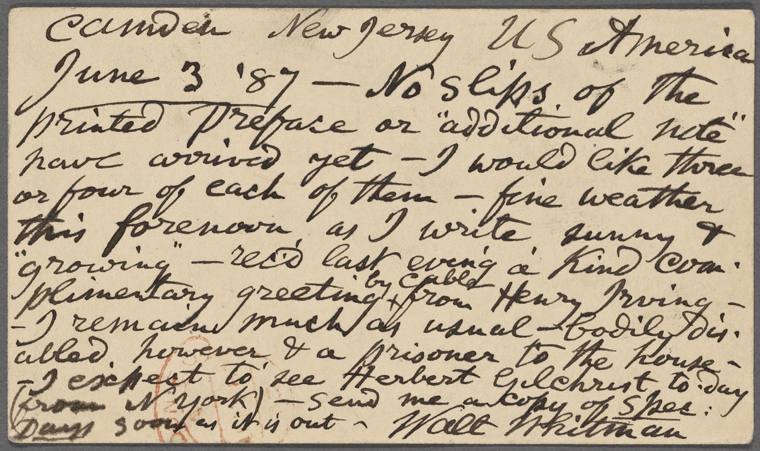 Camden New Jersey US America
June 3 '87 — No slips of the
printed Preface or "additional note"
have arrived yet — I would like three
or four of each of them — fine weather
this forenoon as I write sunny &
"growing" — rec'd last even'g a kind com-
by cable
plimentary greeting from Henry Irving —
— I remain much as usual — bodily dis-
abled however & a prisoner to the house —
— I expect to see Herbert Gilchrist to-day
(from N York) — send me a copy of Spec:
Days soon as it is out — Walt Whitman